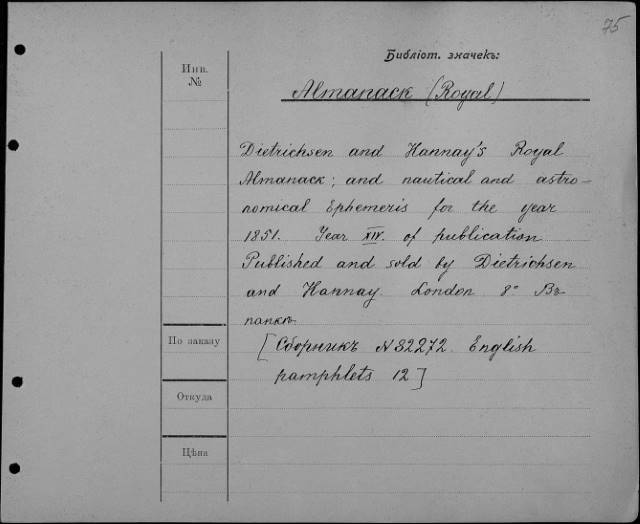 75
Библіот. значекъ:
Инв.
№
Almanack (Royal)
Dietrichsen and Hannay's Royal
Almanack; and nautical and astro-
nomical Ephemeris for the year
1851. Year XIV. of publication
Published and sold by Dietrichsen
and Hannay. London 8° Въ
папкѣ.
По заказу
[Сборникъ N 32272. English
pamphlets 12]
Откуда
Цѣна